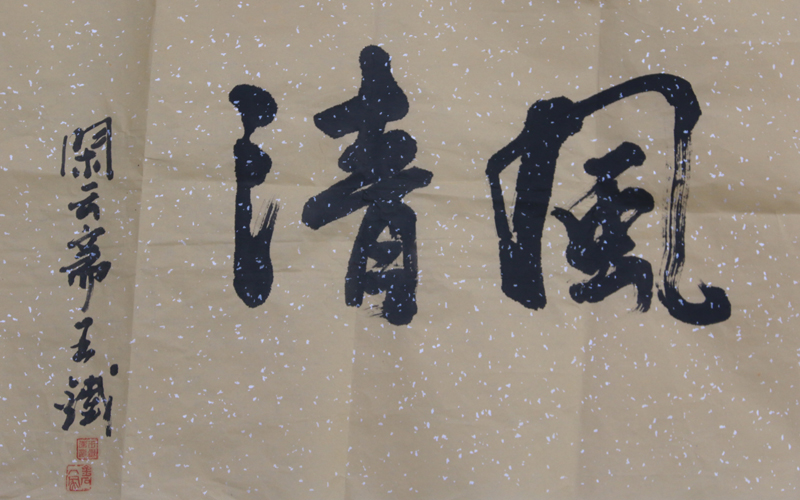 風清
閑云斋王鐵